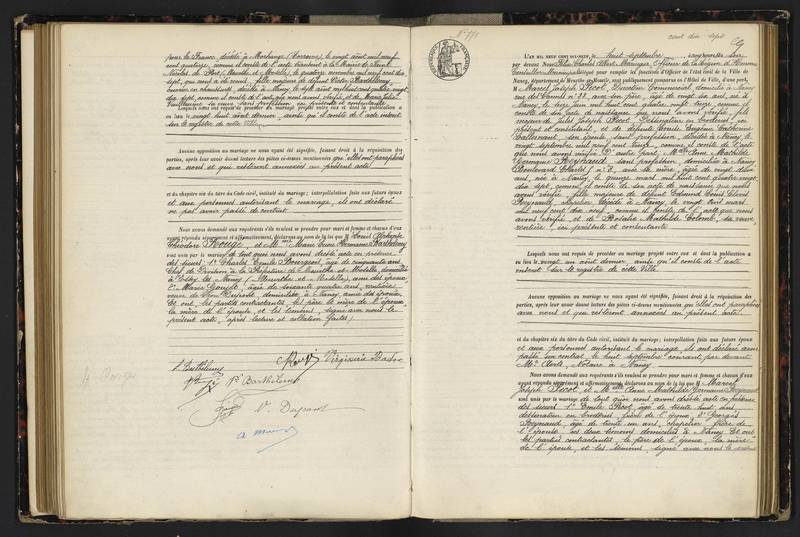 pour la France, décédé à Morhange (Lorraine), le vingt août mil neuf
cent quatorze, comme il conste de l'acte transcrit à la Mairie de Saint-
Nicolas de Port (Meurthe et Moselle), le quatorze novembre mil neuf cent dix
sept, qui nous a été remis, fille majeure de défunt Victor Barthélemy
décédé à Nancy, le sept août mil huit cent quatre vingt
dix sept, comme il conste de l'acte que nous avons vérifié, et de Marie Julie
sa veuve, sans profession, ici présente et consentante.
Lesquels nous ont requis de procéder au mariage projeté entre eux et dont la publication a
eu lieu le vingt huit août dernier, ainsi qu'il conste de l'acte inscrit
sur le registre de cette Ville.
Aucune opposition au mariage ne nous ayant été signifiée, faisant droit à la réquisition des
parties, après leur avoir donné lecture des pièces ci-dessus mentionnées qu'elles ont paraphées
avec nous et qui resteront annexées au présent acte
et du chapitre six du titre du Code civil, intitulé du mariage; interpellation faite aux futurs époux
et aux personnes autorisant le mariage, ils ont déclaré
ne pas avoir passé de contrat
Nous avons demandé aux requérants s'ils veulent se prendre pour mari et femme et chacun d'eux
ayant répondu séparément et affirmativement, déclarons au nom de la loi que M. Louis Alphonse
Théodore Rouge, et Mme Marie Lucie Hermance Barthélemy
sont unis par le mariage de tout quoi nous avons dressé acte en présence
des sieurs: 1° Charles Emile Bourgeois, âgé de cinquante ans
Chef de Division à la Préfecture de Meurthe et Moselle, domicilié
ami des époux
2° Marie Gouyette, âgée de soixante quatre ans, rentière,
veuve de Léon Dupont, domiciliée à Nancy, amie des époux.
Et ont, les parties contractantes, le père, la mère de l'époux,
la mère de l'épouse, et les témoins, signé avec nous le
présent acte, après lecture et collation faites.
L. Barthélemy
Rouge
Virginie
Vve Barthélemy
V. Dupont
N° 791
cent dix sept
L'an mil neuf cent dix-neuf, le huit septembre
par devant Nous Jules Charles Albert Officier de la Légion d'Honneur
Conseiller Municipal délégué pour remplir les fonctions d'Officier de l'état civil de la Ville de
Nancy, département de Meurthe-et-Moselle, sont publiquement comparus en l'Hôtel de Ville, d'une part,
M. Marcel Joseph Picot, Directeur Commercial, domicilié à Nancy
avec son père, âgé de vingt six ans, né à
Nancy, le onze juin mil huit cent quatre vingt treize, comme il
conste de son acte de naissance que nous avons vérifié, fils
majeur de Jules Joseph Picot, Dessinateur en broderies, ici
présent et consentant, et de défunte Eugénie Catherine
son épouse, sans profession, décédée à Nancy, le
vingt septembre mil neuf cent comme il conste de l'acte
que nous avons vérifié. D'autre part, Mlle Anne Mathilde
Germaine Reynaud, sans profession, domiciliée à Nancy
Boulevard Charles V n° 2, avec sa mère, âgée de vingt deux
ans, née à Nancy, le quinze mars mil huit cent quatre vingt
dix sept, comme il conste de son acte de naissance que nous
avons vérifié, fille majeure de défunt Edmond Louis
Reynaud, décédé à Nancy, le vingt trois mars
mil neuf cent dix neuf, comme il conste de l'acte que nous
avons vérifié, et de Rosalie Mathilde Colomb, sa veuve,
rentière, ici présente et consentante.
Lesquels nous ont requis de procéder au mariage projeté entre eux et dont la publication a
eu lieu le vingt un août dernier, ainsi qu'il conste de l'acte
inscrit sur le registre de cette Ville.
Aucune opposition au mariage ne nous ayant été signifiée, faisant droit à la réquisition des
parties, après leur avoir donné lecture des pièces ci-dessus mentionnées qu'elles ont paraphées
avec nous et qui resteront annexées au présent acte.
et du chapitre six du titre du Code civil, intitulé du mariage; interpellation faite aux futurs époux
et aux personnes autorisant le mariage, ils ont déclaré avoir
passé un contrat le huit septembre courant par devant
Me Aerts, Notaire à Nancy
Nous avons demandé aux requérants s'ils veulent se prendre pour mari et femme et chacun d'eux
ayant répondu séparément et affirmativement, déclarons au nom de la loi que M. Marcel
Joseph Picot, et Mlle Anne Mathilde Germaine Reynaud
sont unis par le mariage de tout quoi nous avons dressé acte en présence
des sieurs 1° Emile Picot, âgé de trente huit ans,
dessinateur en broderies, frère de l'époux, 2° Georges
Reynaud, âgé de trente un ans, chapelier, frère de
l'épouse, les deux témoins domiciliés à Nancy. Et ont
les parties contractantes, le père de l'époux, la mère
de l'épouse, et les témoins, signé avec nous le présent